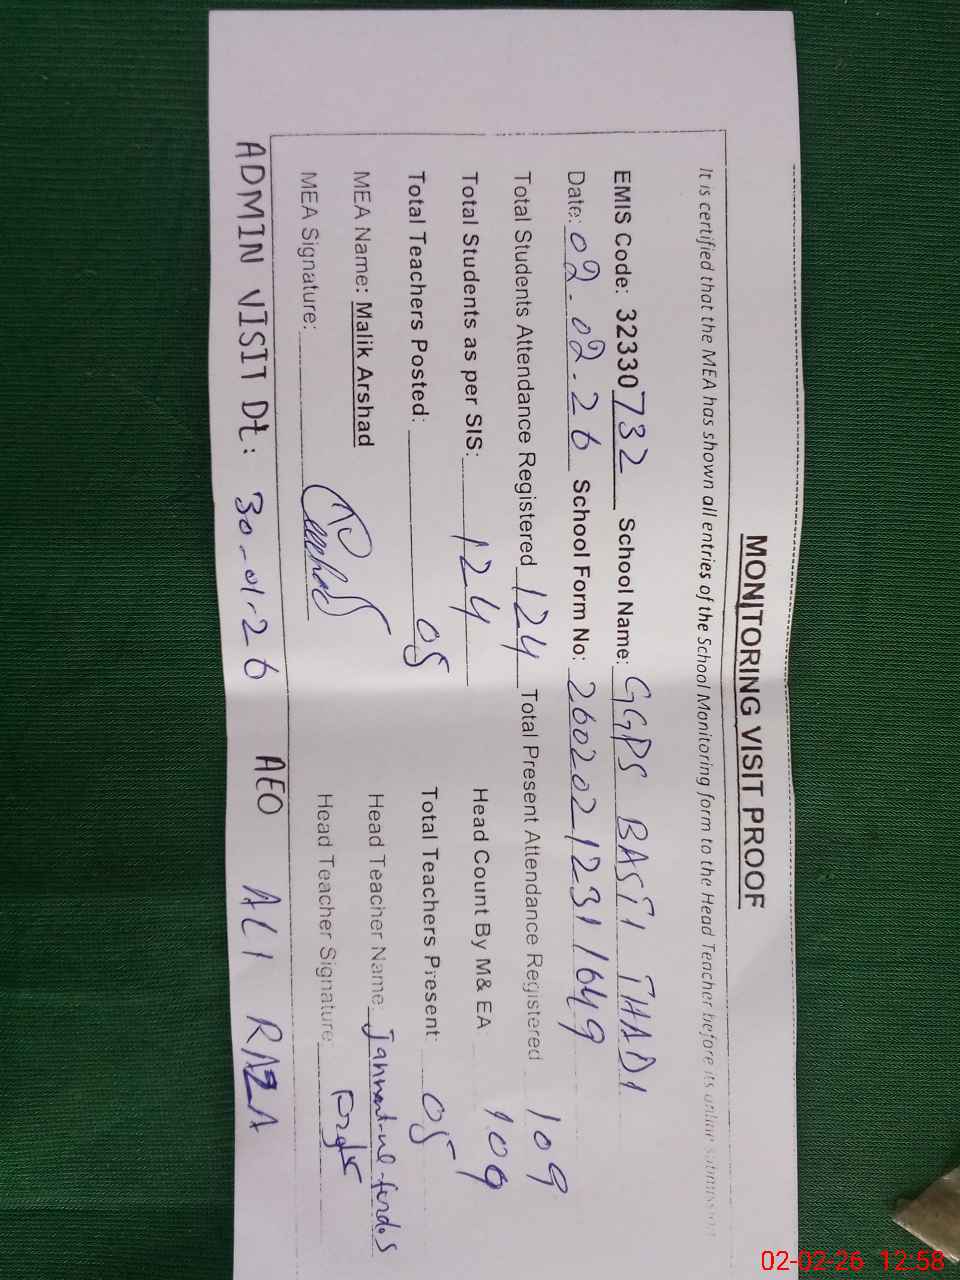 MONITORING VISIT PROOF
It is certified that the MEA has shown all entries of the School Monitoring form to the Head Teacher before its online submission
EMIS Code: 32330732 School Name: GGPS BASTI THADI
Date: 02.02.26 School Form No: 2602021231649
Total Students Attendance Registered 124 Total Present Attendance Registered 109
Total Students as per SIS: 124 Head Count By M& EA 109
Total Teachers Posted: 05 Total Teachers Present: 05
MEA Name: Malik Arshad Head Teacher Name: Jannat-ul-firdos
MEA Signature: Head Teacher Signature:
ADMIN VISIT Dt: 30-01-26 AEO ALI RAZA
02-02-26 12:58